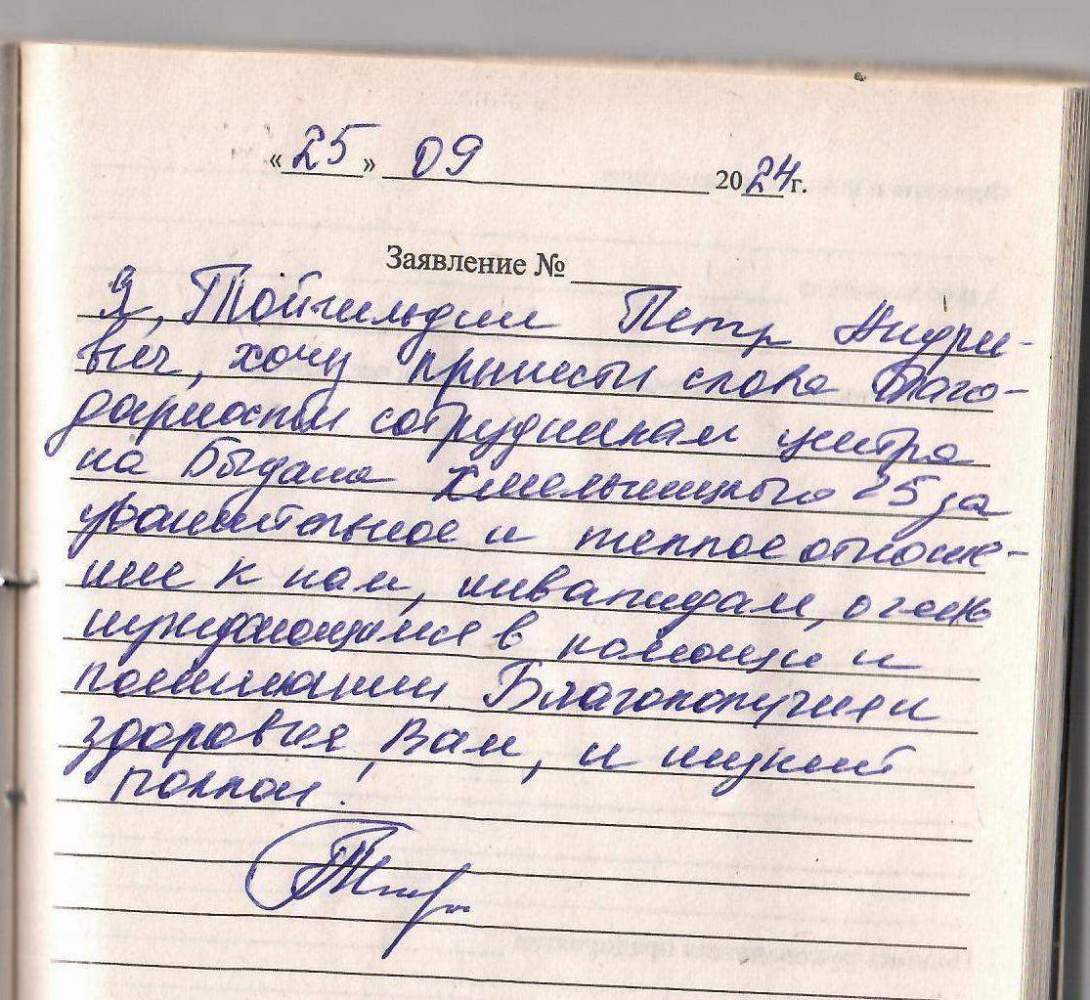 «25» 09 2024г.
Заявление №
Я, Тойгильдин Петр Андри-
вич, хочу принести слова благо-
дарности сотрудникам центра
на Богдана Хмельницкого 25 за
уважительное и теплое отноше-
ние к нам, инвалидам, очень
нуждающимся в помощи и
понимании Благополучия и
здоровья Вам, и низкий
поклон!